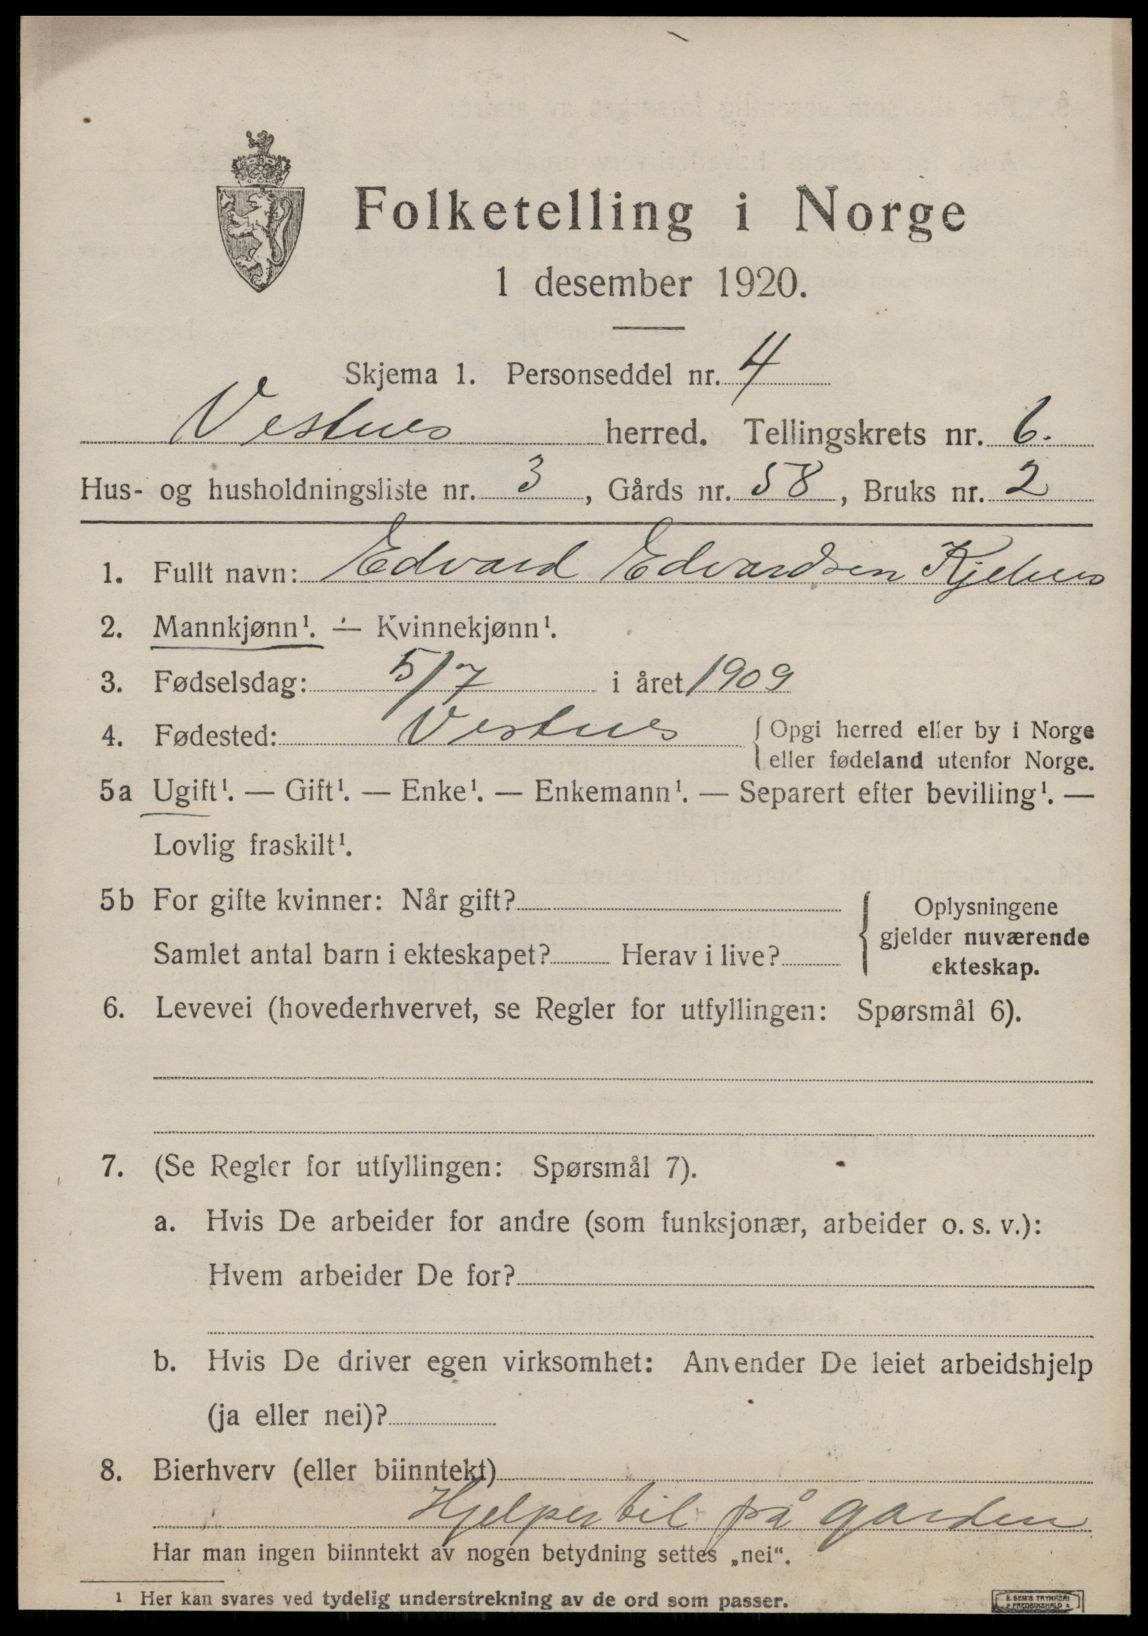 Folketelling i Norge
1 desember 1920.
Skjema 1. Personseddel nr. 4
Vestnes herred. Tellingskrets nr. 6.
Hus- og husholdningsliste nr. 3, Gårds nr. 58, Bruks nr. 2
1. Fullt navn: Edvard Edvardsen Kjelnes
2. Mannkjønn¹. — Kvinnekjønn¹.
3. Fødselsdag: 5/7 i året 1909
4. Fødested: Vestnes { Opgi herred eller by i Norge
eller fødeland utenfor Norge.
5a Ugift¹. — Gift¹. — Enke¹. — Enkemann¹. — Separert efter bevilling¹. —
Lovlig fraskilt¹.
5b For gifte kvinner: Når gift?
Samlet antal barn i ekteskapet? Herav i live?
{ Oplysningene
gjelder nuværende
ekteskap.
6. Levevei (hovederhvervet, se Regler for utfyllingen: Spørsmål 6).
7. (Se Regler for utfyllingen: Spørsmål 7).
a. Hvis De arbeider for andre (som funksjonær, arbeider o. s. v.):
Hvem arbeider De for?
b. Hvis De driver egen virksomhet: Anvender De leiet arbeidshjelp
(ja eller nei)?
8. Bierhverv (eller biinntekt)
Hjelper til på garden
Har man ingen biinntekt av nogen betydning settes „nei“.
¹ Her kan svares ved tydelig understrekning av de ord som passer.
E SEM'S TRYKKERI
FREDRIKSHALD